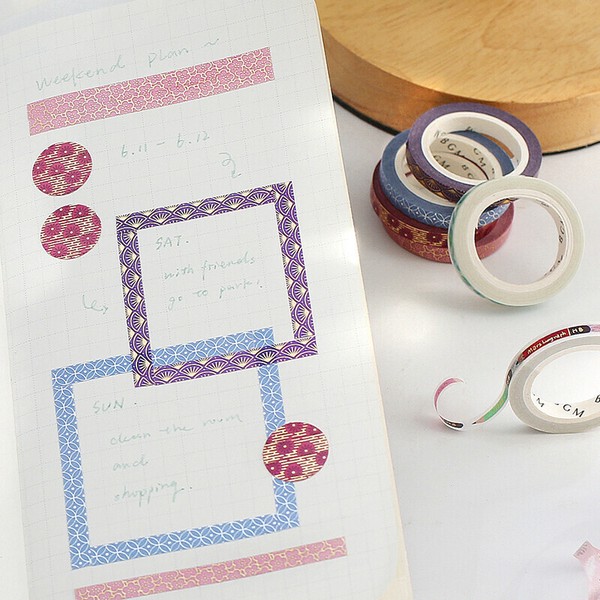 weekend plan ~
6.11 - 6.12
SAT.
with friends
go to park.
SUN.
clean the room
and
shopping.
BGM
BGM
HB
BGM